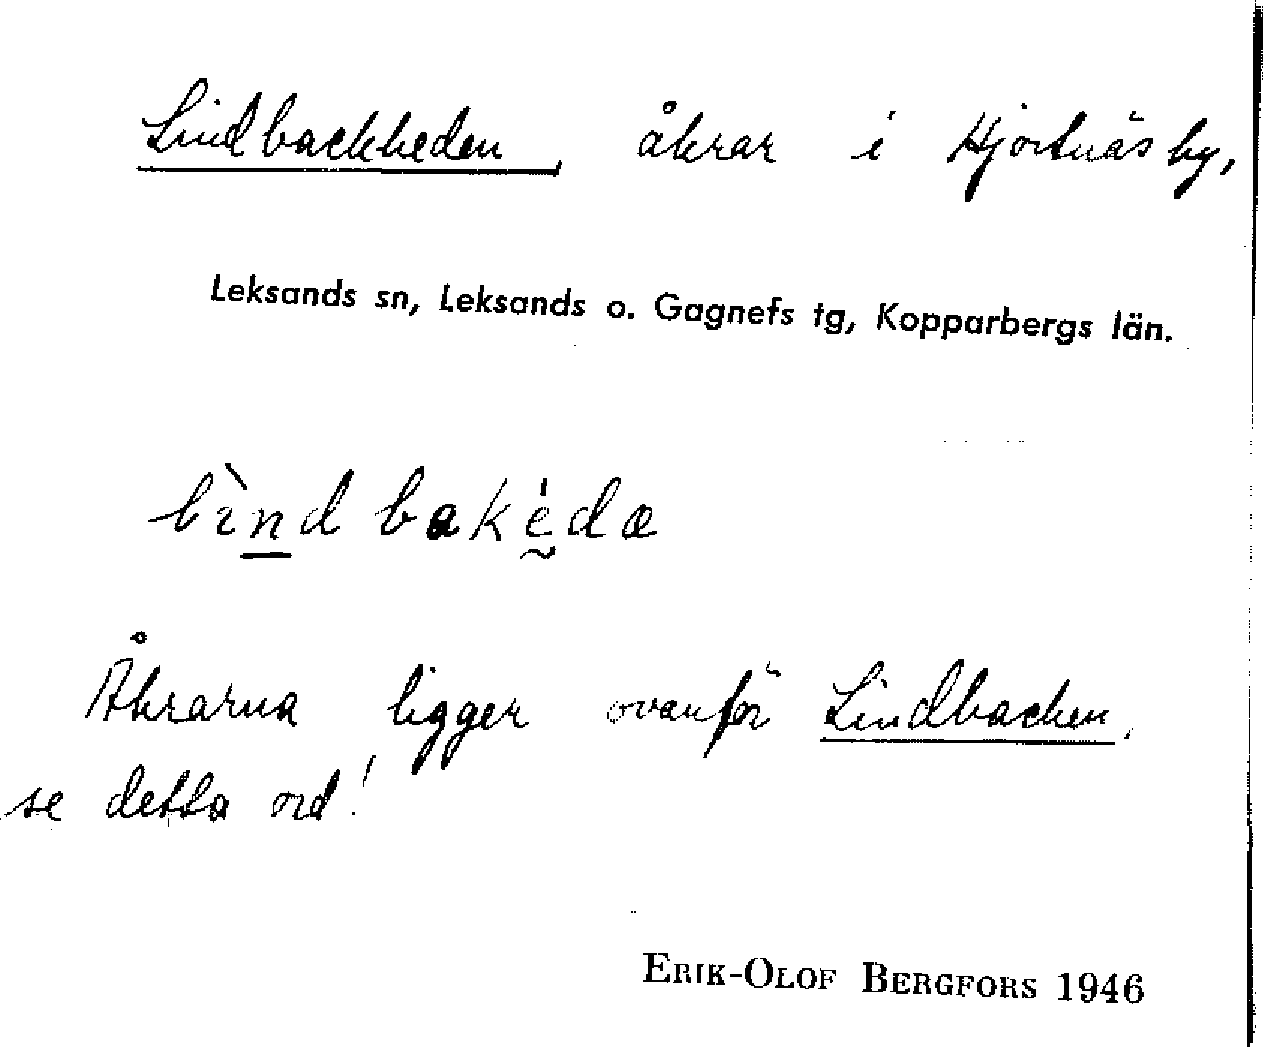 Lindbackheden, åkrar i Hjortnäs by,
Leksands sn, Leksands o. Gagnefs tg, Kopparbergs län.
Åkrarna ligger ovanför Lindbacken,
se detta ord!
ERIK-OLOF BERGFORS 1946